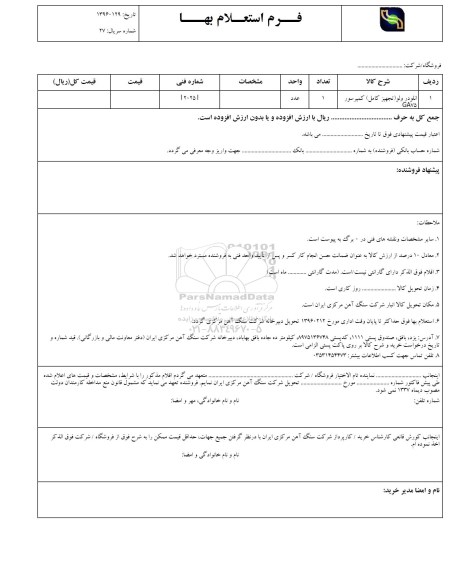 فرم استعلام بها
تاریخ: ۱۳۹۶۰۱۲۹
شماره سریال: ۲۷
فروشگاه/شرکت: ........................
ردیف شرح کالا تعداد واحد مشخصات شماره فنی قیمت قیمت کل(ریال)
۱ انلودر ولو(تجهیز کامل) کمپرسور GA۷۵ ۱ عدد (۲۰۲۵)
جمع کل به حرف ........................ ریال با ارزش افزوده و یا بدون ارزش افزوده است.
اعتبار قیمت پیشنهادی فوق تا تاریخ ........................ می باشد.
شماره حساب بانکی (فروشنده) به شماره ........................ بانک ........................ جهت واریز وجه معرفی می گردد.
پیشنهاد فروشنده:
ملاحظات:
۱. سایر مشخصات ونقشه های فنی در ۰ برگ به پیوست است.
۲. معادل ۱۰ درصد از ارزش کالا به عنوان ضمانت حسن انجام کار کسر و پس از تأیید واحد فنی به فروشنده مسترد خواهد شد.
۳. اقلام فوق الذکر دارای گارانتی نیست/است. (مدت گارانتی ........... ماه است)
۴. زمان تحویل کالا ................ روز کاری است.
۵. مکان تحویل کالا انبار شرکت سنگ آهن مرکزی ایران است.
۶. استعلام بها فوق حداکثر تا پایان وقت اداری مورخ ۱۳۹۶۰۲۱۲ تحویل دبیرخانه شرکت سنگ آهن مرکزی گردد.
۷. آدرس: یزد، بافق، صندوق پستی ۱۱۱۱، کدپستی ۸۹۷۵۱۳۶۷۴۸ کیلومتر ده جاده بافق بهاباد، دبیرخانه شرکت سنگ آهن مرکزی ایران (دفتر معاونت مالی و بازرگانی). قید شماره و
تاریخ درخواست خرید و شرح کالا بر روی پاکت پستی الزامی است.
۸. تلفن تماس جهت کسب اطلاعات بیشتر:
ParsNamadData
۰۲۱-۸۸۳۴۹۶۷۰-۵
اینجانب ................ نماینده تام الاختیار فروشگاه / شرکت ........................ متعهد می گردم اقلام مذکور را با شرایط، مشخصات و قیمت های اعلام شده
طی پیش فاکتور شماره ................ مورخ ................ تحویل شرکت سنگ آهن مرکزی ایران نمایم. فروشنده تعهد می نماید که مشمول قانون منع مداخله کارمندان دولت
مصوب دیماه ۱۳۳۷ نمی شود.
شماره تلفن: نام و نام خانوادگی، مهر و امضا:
اینجانب کورش قانعی کارشناس خرید / کارپرداز شرکت سنگ آهن مرکزی ایران با درنظر گرفتن جمیع جهات، حداقل قیمت ممکن را به شرح فوق از فروشگاه / شرکت فوق الذکر
اخذ نموده ام.
نام و نام خانوادگی و امضا:
نام و امضا مدیر خرید: